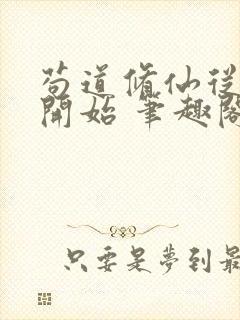 苟道脩仙從
開始 筆趣閣
只要是夢到最